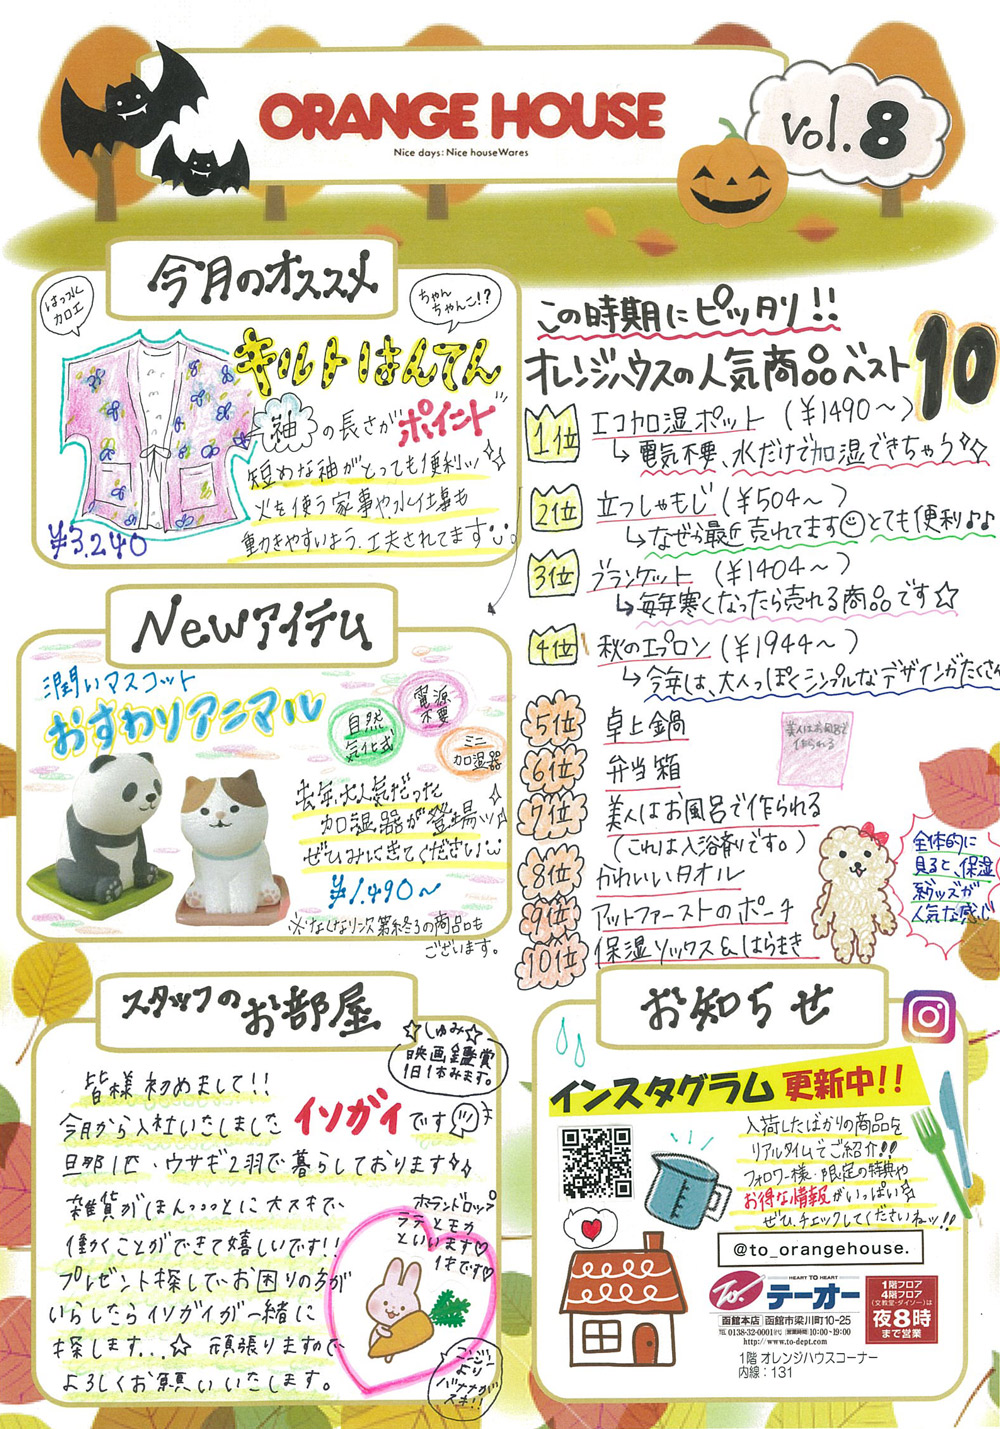 ORANGE HOUSE
Nice days: Nice houseWares
vol.8
今月のオススメ
はっ水
加工
ちゃん
ちゃんこ!?
キルトはんてん
袖の長さがポイント
短めな袖がとっても便利ッ
火を使う家事や水仕事も
動きやすいよう、工夫されてます
¥3,240
Newアイテム
潤いマスコット
おすわりアニマル
自然
気化式
電源
不要
ミニ
加湿器
去年大人気だった
加湿器が登場ッ
ぜひみにきてください
¥1,490～
※なくなり次第終了の商品も
ございます。
この時期にピッタリ!!
オレンジハウスの人気商品ベスト10
1位 エコ加湿ポット (¥1490～)
↳電気不要、水だけで加湿できちゃう
2位 立つしゃもじ (¥504～)
↳なぜか最近売れてます☺とても便利♪♪
3位 ブランケット (¥1404～)
↳毎年寒くなったら売れる商品です☆
4位 秋のエプロン (¥1944～)
↳今年は、大人っぽくシンプルなデザインがたくさん
5位 卓上鍋
6位 弁当箱
7位 美人はお風呂で作られる
(これは入浴剤です。)
8位 かわいいタオル
9位 アットファーストのポーチ
10位 保湿ソックス&はらまき
美人はお風呂で
作られる
全体的に
見ると、保湿
グッズが
人気な感じ
スタッフのお部屋
☆しゅみ☆
映画鑑賞
1日1本みます。
皆様初めまして!!
今月から入社いたしました イソガイです
旦那1匹、ウサギ2羽で暮らしております
雑貨がほんっっっとに大スキで、
働くことができて嬉しいです!!
プレゼント探しでお困りの方が
いらしたらイソガイが一緒に
探します...☆ 頑張りますので
よろしくお願いいたします。
ホーランドロップ
ララとモカ
といいます♡
1才です♡
ニンジン
より
バナナが
スキ!!
お知らせ
インスタグラム 更新中!!
入荷したばかりの商品を
リアルタイムでご紹介!!
フォロワー様限定の特典や
お得な情報がいっぱい☆
ぜひ、チェックしてくださいねッ!!
@to_orangehouse.
HEART TO HEART
To. テーオー
函館本店 函館市梁川町10-25
TEL 0138-32-0001(代) 営業時間 10:00-19:00
http://www.to-dept.com
1階フロア
4階フロア
(文教堂・ダイソー)は
夜8時
まで営業
1階 オレンジハウスコーナー
内線：131